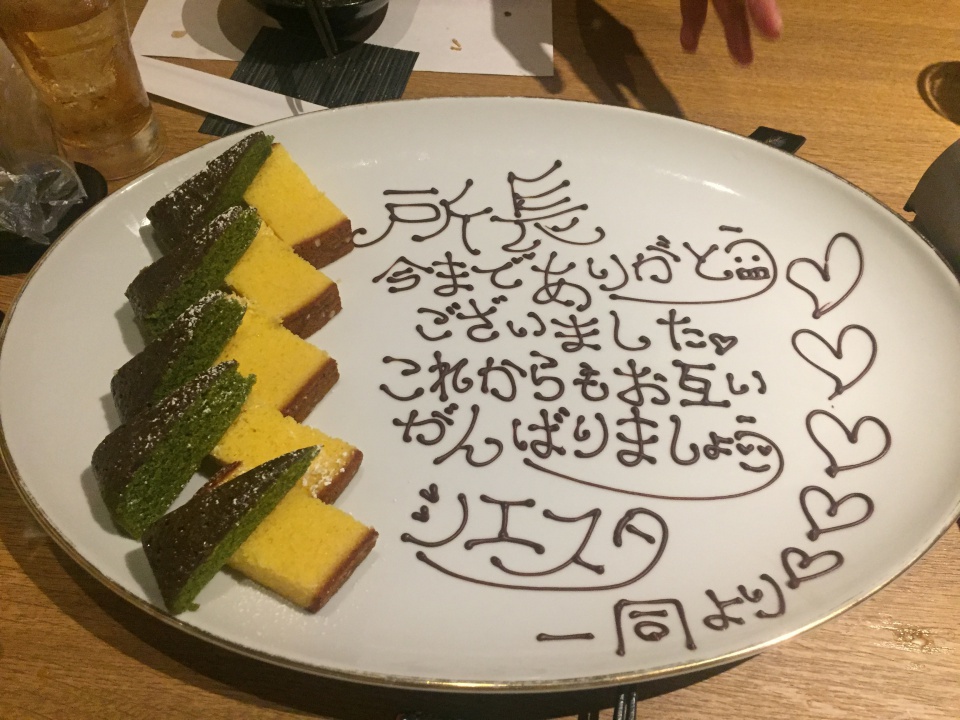 所長
今まで ありがとう
ございました
これからもお互い
がんばりましょう
シエスタ
一同より